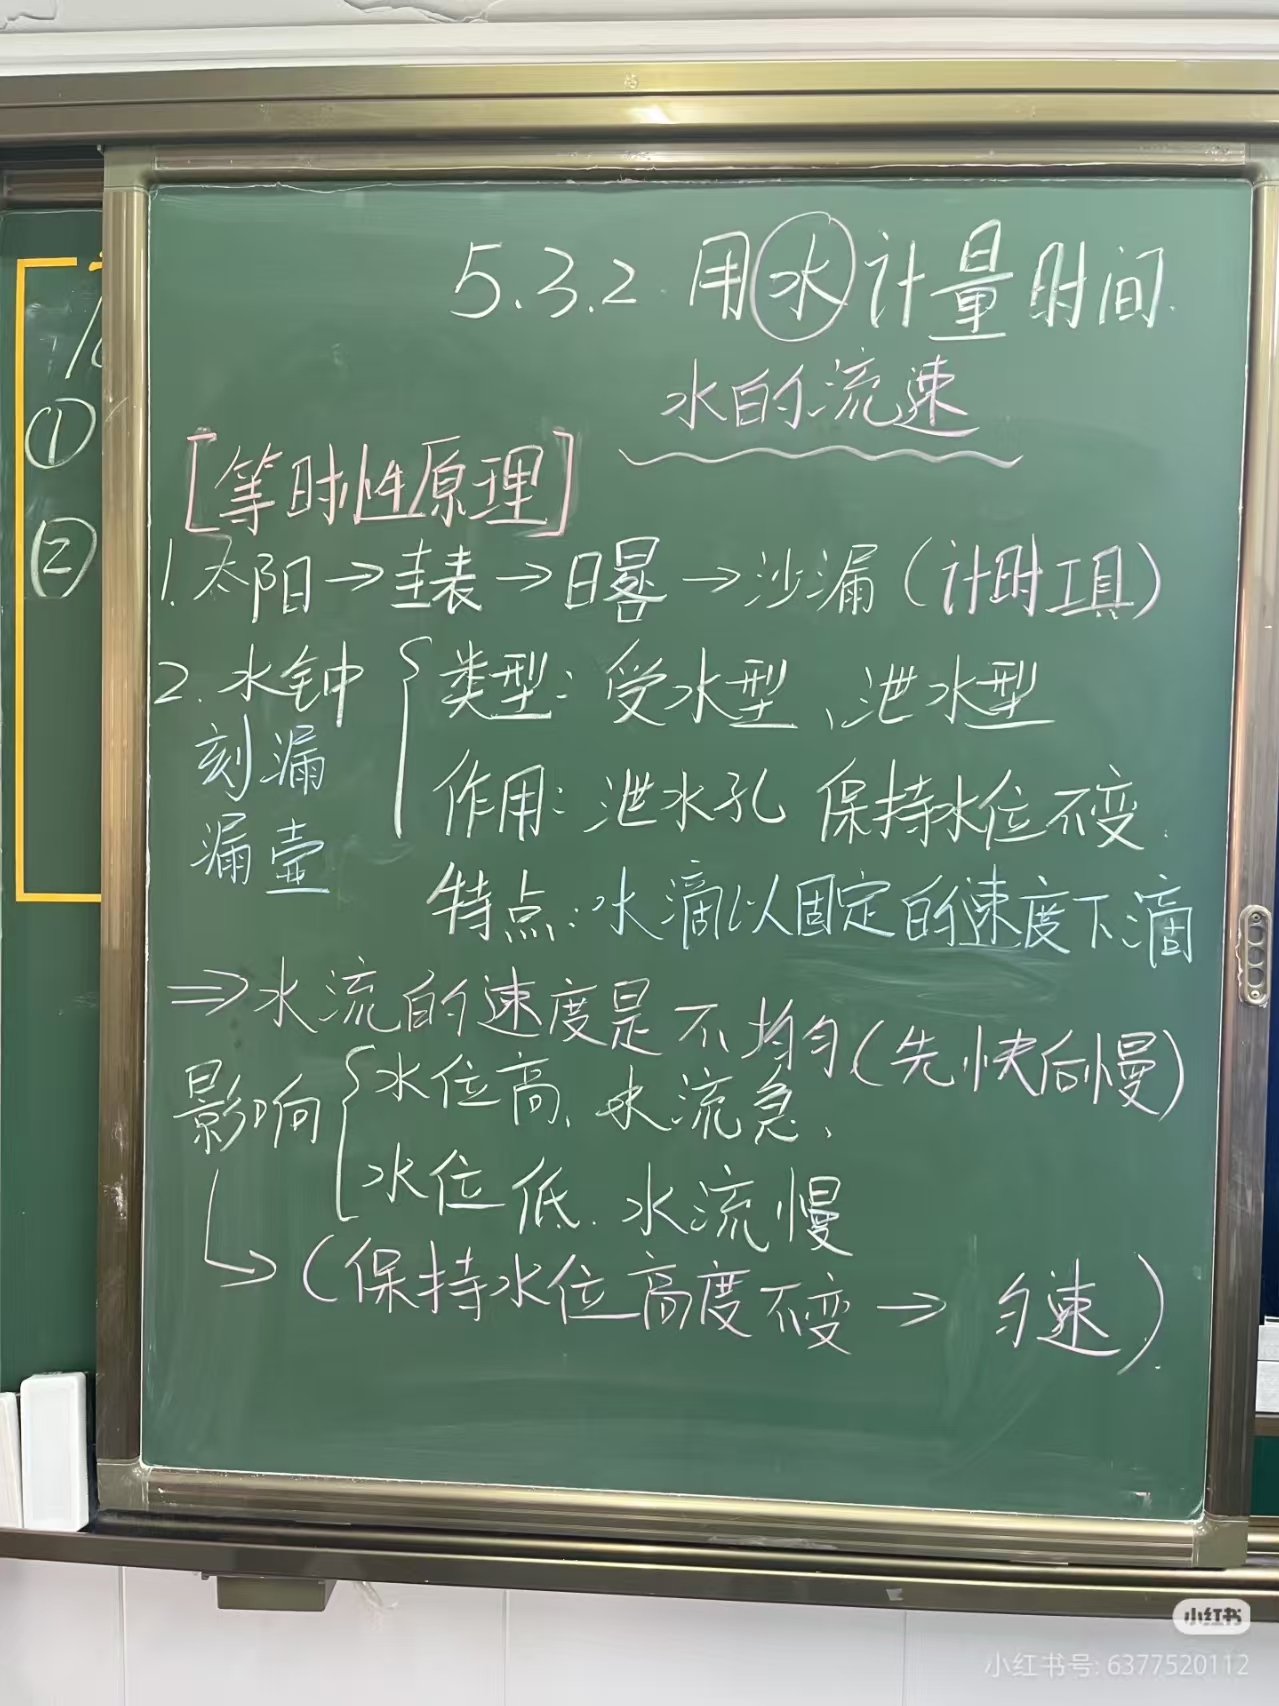 5.3.2 用水计量时间.
水的流速
[等时性原理]
1. 太阳→圭表→日晷→沙漏（计时工具）
2. 水钟
刻漏
漏壶
类型: 受水型、泄水型
作用: 泄水孔 保持水位不变.
特点: 水滴以固定的速度下滴
⇒水流的速度是不均匀(先快后慢)
影响
水位高、水流急、
水位低. 水流慢
(保持水位高度不变→匀速).
①
②
小红书
小红书号: 6377520112